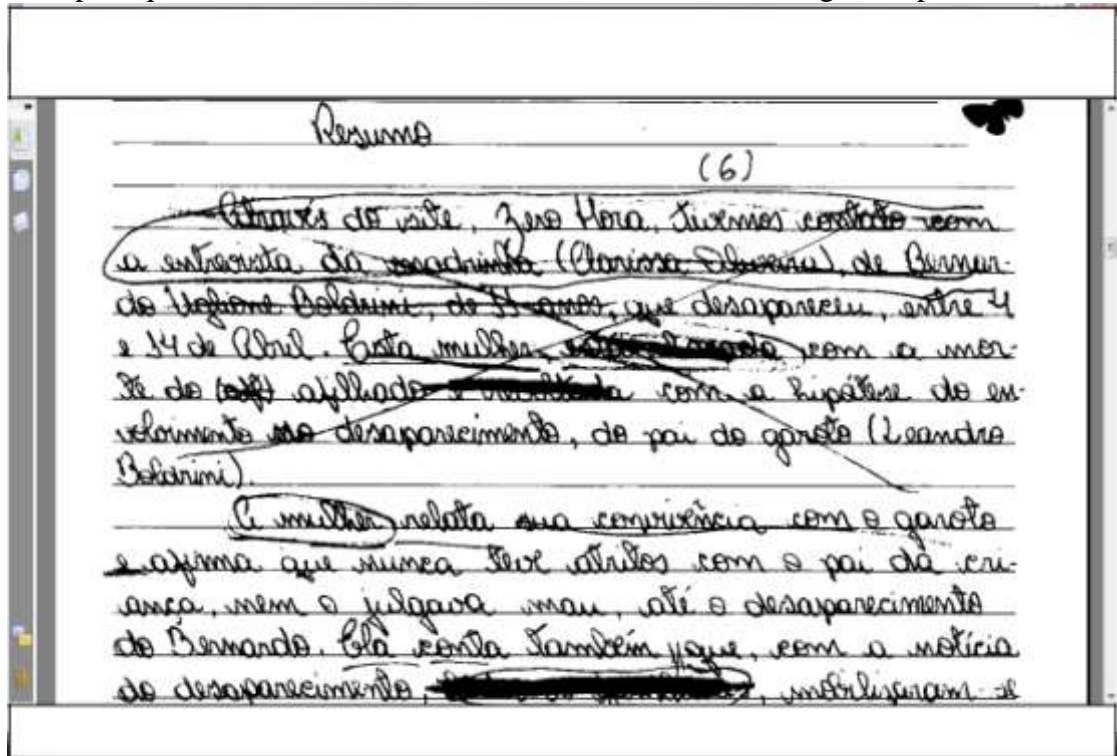 Resumo
(6)
Através do site, Zero Hora, tivemos contato com
a entrevista da madrinha (Clarissa Oliveira), de Bernar-
do Uglione Boldrini, de 11 anos, que desapareceu, entre 4
e 14 de Abril. Esta mulher, com a mor-
te do afilhado com a hipótese do en-
volvimento no desaparecimento, do pai do garoto (Leandro
Boldrini).
A mulher relata sua convivência com o garoto
e afirma que nunca teve atritos com o pai da cri-
ança, nem o julgava mau, até o desaparecimento
do Bernardo. Ela conta também que, com a notícia
do desaparecimento, , mobilizaram-se